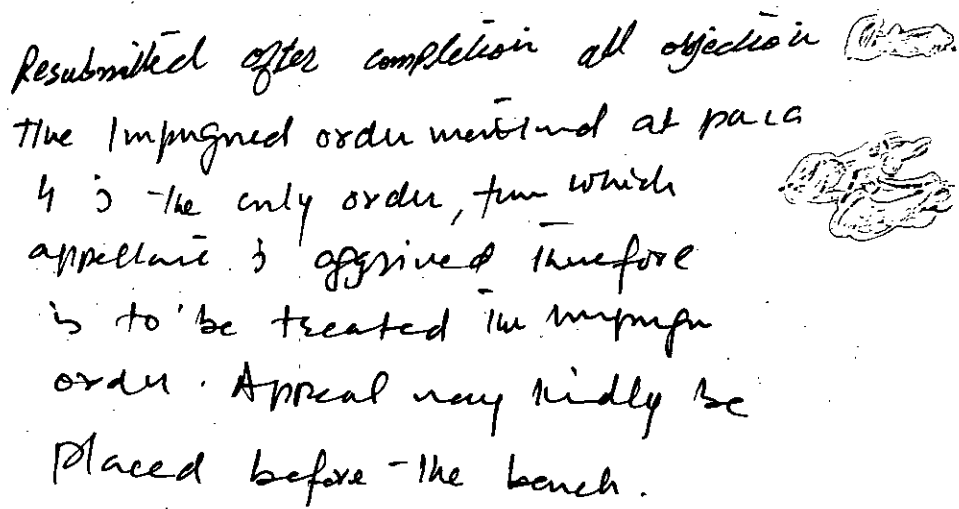 Resubmitted after completion all objection
The Impugned order mentioned at para
4 is the only order, from which
appellant is aggrived therefore
is to be treated the impugn
order. Appeal may kindly be
placed before the bench.